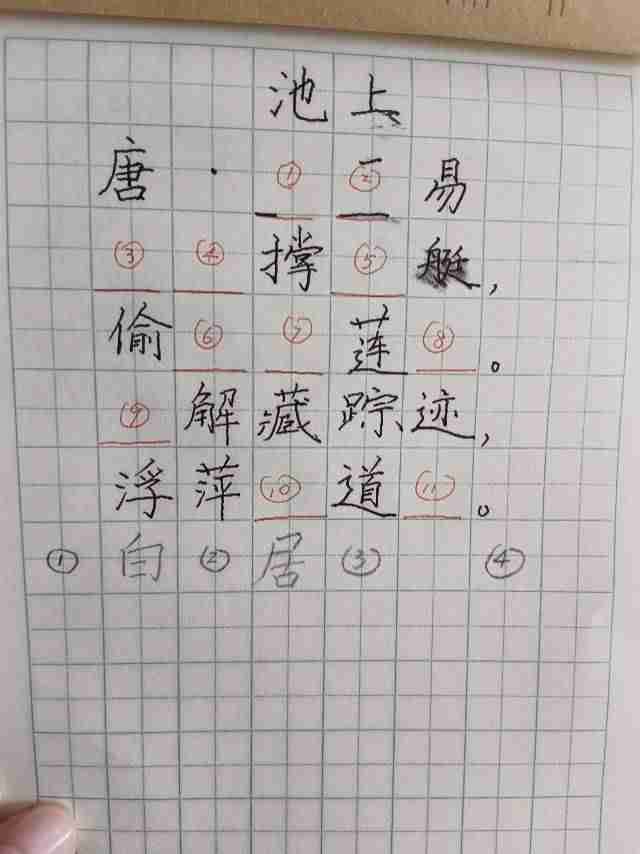 池上
唐·①②易
③④撑⑤艇,
偷⑥⑦莲⑧。
⑨解藏踪迹,
浮萍⑩道⑪。
①白②居③④